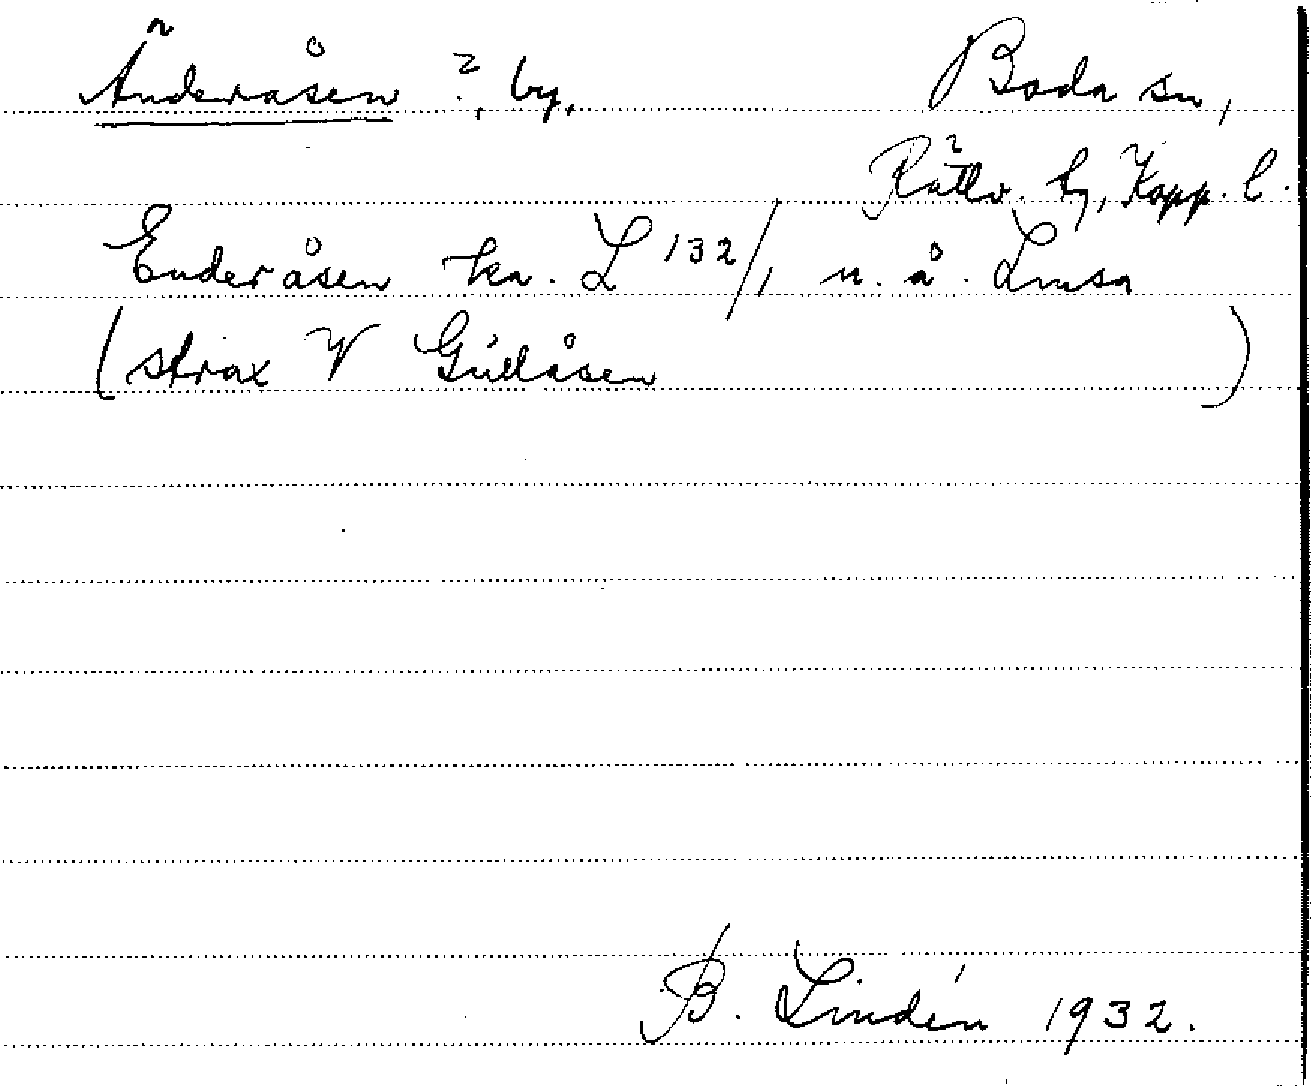 Änderåsen ?, by,
Boda sn,
Rättv. hg, Kopp. l.
Enderåsen ka. L 132/, n. å. Lmsa
(strax V Gulåsen )
B. Lindén 1932.